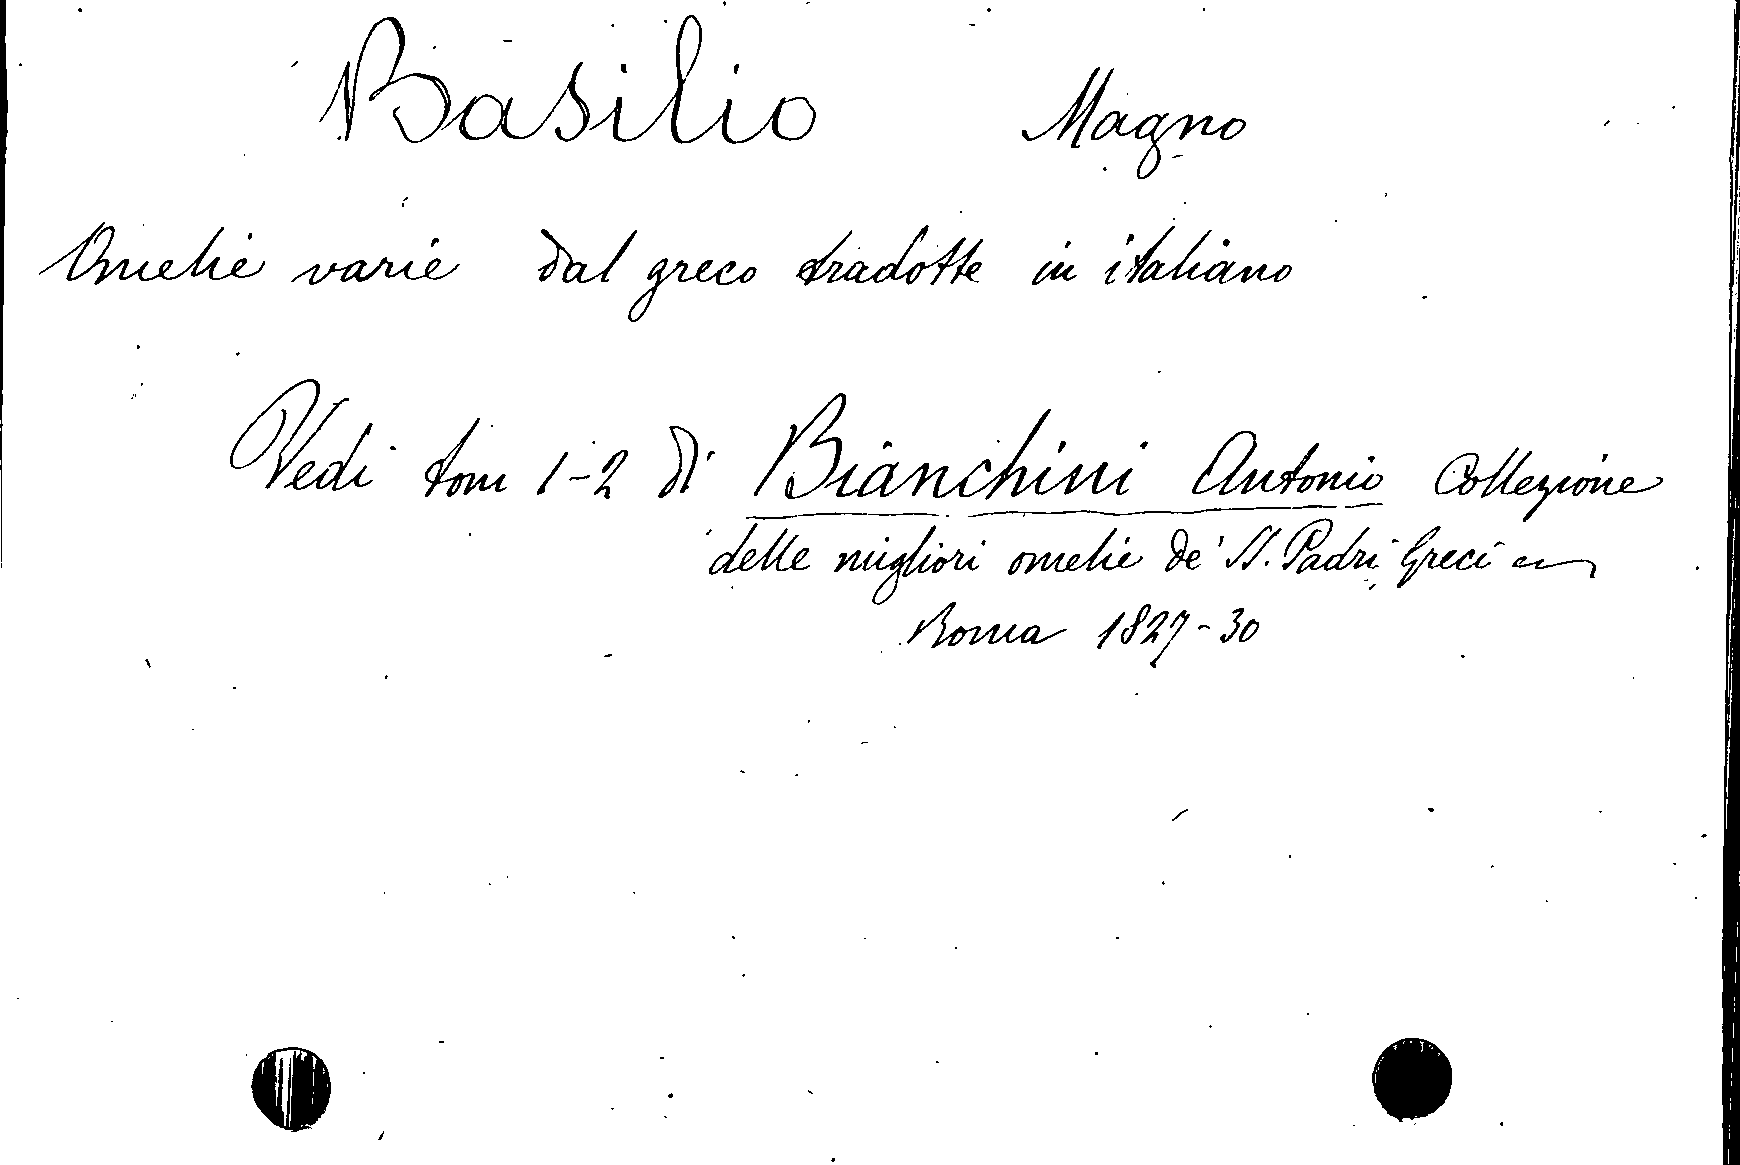 Basilio Magno
Omelie varie dal greco tradotte in italiano
Vedi tom 1-2 di Bianchini Antonio Collezione
delle migliori omelie de' SS. Padri Greci
Roma 1827-30